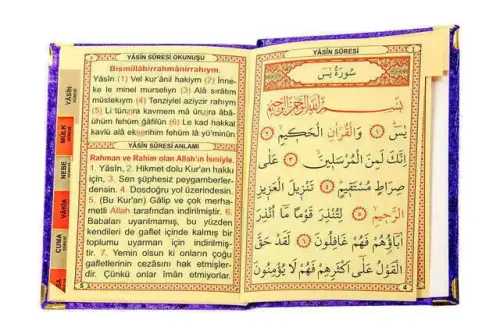 YÂSİN SÛRESİ OKUNUŞU
Bismillâhirrahmânirrahıym.
Yâsîn (1) Vel kur'ânil hakiym (2) İnne-
ke le minel murseliyn (3) Alâ sırâtım
müstekıym (4) Tenziylel aziyzir rahıym
(5) Li tünzira kavmem mâ ünzira âbâ-
ühüm fehüm ğâfilûn (6) Le kad hakkal
kavlü alâ ekserihim fehüm lâ yü'minûn
YÂSİN SÛRESİ ANLAMI
Rahman ve Rahim olan Allah'ın İsmiyle.
1. Yâsîn, 2. Hikmet dolu Kur'an hakkı
için, 3. Sen şüphesiz peygamberler-
densin. 4. Dosdoğru yol üzerindesin.
5. (Bu Kur'an) Gâlip ve çok merha-
metli Allah tarafından indirilmiştir. 6.
Babaları uyarılmamış, bu yüzden
kendileri de gaflet içinde kalmış bir
toplumu uyarman için indirilmiş-
tir. 7. Yemin olsun ki onların çoğu
gafletlerinin cezâsını hak etmişler-
dir. Çünkü onlar îman etmiyorlar.
5
YÂSİN
MÜLK
NEBE
VÂKIA
CUMA
YÂSİN SÛRESİ
سُورَةُ يٰسۤ
بِسْمِ اللّٰهِ الرَّحْمٰنِ الرَّحِيمِ
يٰسۤ ﴿١﴾ وَالْقُرْاٰنِ الْحَكِيمِ ﴿٢﴾
اِنَّكَ لَمِنَ الْمُرْسَلِينَ ﴿٣﴾ عَلٰى
صِرَاطٍ مُسْتَقِيمٍ ﴿٤﴾ تَنْزِيلَ الْعَزِيزِ
الرَّحِيمِ ﴿٥﴾ لِتُنْذِرَ قَوْمًا مَٓا اُنْذِرَ
اٰبَٓاؤُ۬هُمْ فَهُمْ غَافِلُونَ ﴿٦﴾ لَقَدْ حَقَّ
الْقَوْلُ عَلٰٓى اَكْثَرِهِمْ فَهُمْ لَا يُؤْمِنُونَ
4